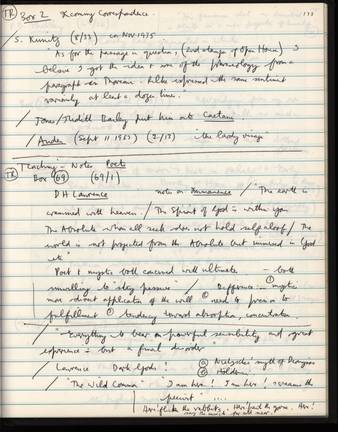 TR Box 2 Xcomny Correspondence.
133
/ S. Kunitz (8/23) ca Nov 1935
"As for the passage in question, (2nd stanza of Open House) I
believe I got the idea & some of the phraseology from a
paragraph in Thoreau. He has expressed the same sentiment
variously at least a dozen times.
/ Jones / Judith Bailey put him onto Caetani
/ Auden (Sept 11 1953) (2/13) the lovely visage
TR Teaching - Notes Poets
Box 69 (69/1)
D H Lawrence notes on Immanence / 'The earth is
crammed with heaven. / The Spirit of God is within you
The Absolute whom all seek does not hold self aloof / The
world is not projected from the Absolute but immersed in God
etc
Poet & mystic both concerned with ultimate - both
unwilling to "stay passive" / Difference: ① mystic
more direct application of the will ② need to press on to
fulfillment ③ tendency toward absorption, concentration.
/ "Everything to bear on powerful sensibility and great
experience - but a final disorder"
/ Lawrence Dark Gods! ⓐ Nietzsche's myth of Dionysos
ⓑ Holdom.
/ "The Wild Common" I am here! I am here! screams the
peewit
Here fling the rabbits, Here part the gorse. Here!